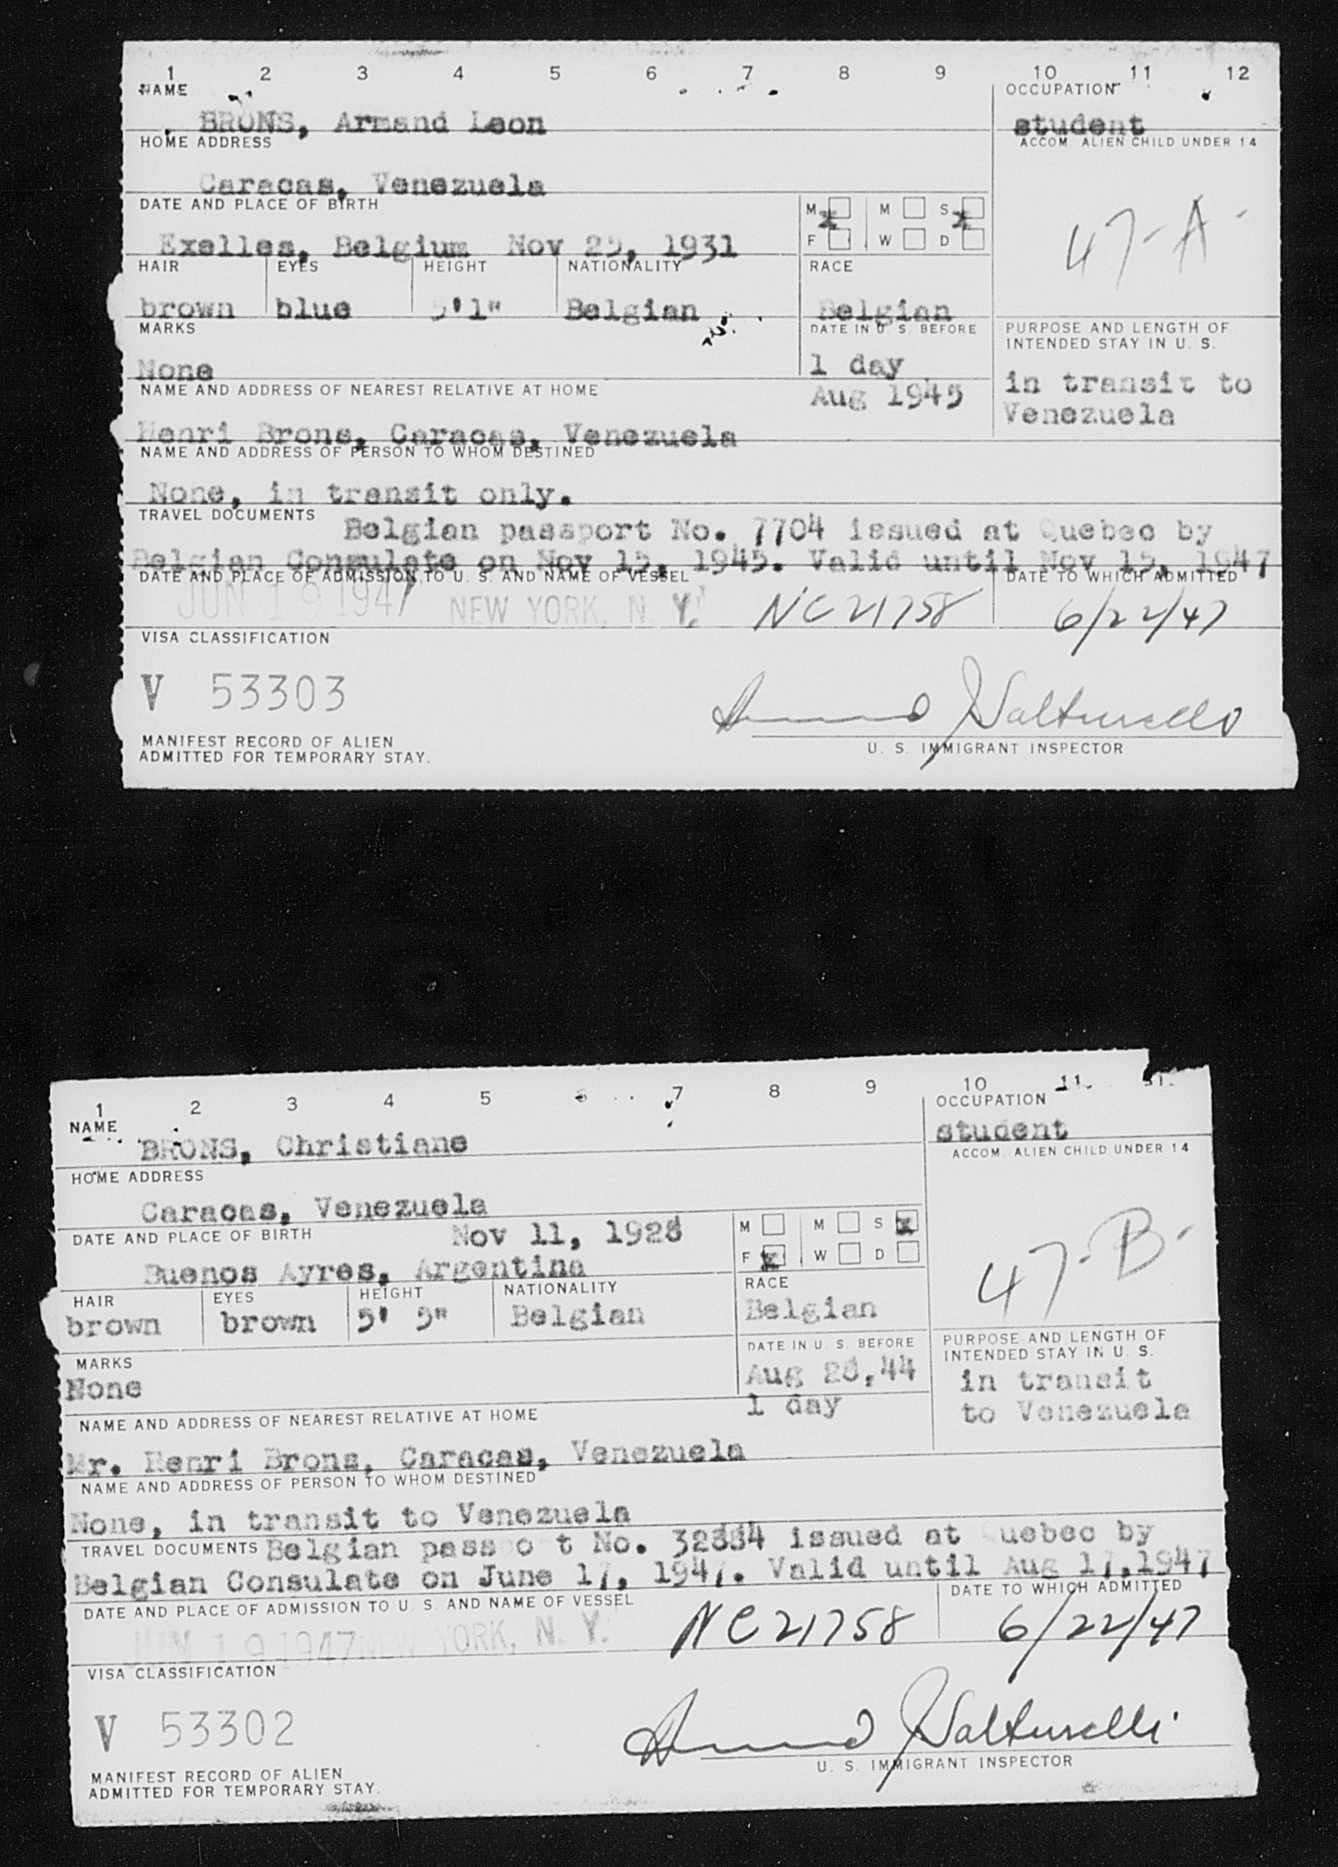 1 2 3 4 5 6 7 8 9 10 11 12
NAME OCCUPATION
BRONS, Armand Leon student
HOME ADDRESS ACCOM. ALIEN CHILD UNDER 14
Caracas, Venezuela
DATE AND PLACE OF BIRTH M M S
F W D
Exelles, Belgium Nov 25, 1931 47-A-
HAIR EYES HEIGHT NATIONALITY RACE
brown blue 5'1" Belgian Belgian
MARKS DATE IN U. S. BEFORE PURPOSE AND LENGTH OF
INTENDED STAY IN U. S.
None 1 day
NAME AND ADDRESS OF NEAREST RELATIVE AT HOME Aug 1945 in transit to
Venezuela
Henri Brons, Caracas, Venezuela
NAME AND ADDRESS OF PERSON TO WHOM DESTINED
None, in transit only.
TRAVEL DOCUMENTS Belgian passport No. 7704 issued at Quebec by
Belgian Consulate on Nov 15, 1945. Valid until Nov 15, 1947
DATE AND PLACE OF ADMISSION TO U. S. AND NAME OF VESSEL DATE TO WHICH ADMITTED
JUN 19 1947 NEW YORK, N. Y. NC 21758 6/22/47
VISA CLASSIFICATION
V 53303
MANIFEST RECORD OF ALIEN U. S. IMMIGRANT INSPECTOR
ADMITTED FOR TEMPORARY STAY.
1 2 3 4 5 6 7 8 9 10 11
NAME OCCUPATION
BRONS, Christiane student
HOME ADDRESS ACCOM. ALIEN CHILD UNDER 14
Caracas, Venezuela
DATE AND PLACE OF BIRTH Nov 11, 1928 M M S
Buenos Ayres, Argentina F W D
47-B-
HAIR EYES HEIGHT NATIONALITY RACE
brown brown 5' 5" Belgian Belgian
MARKS DATE IN U. S. BEFORE PURPOSE AND LENGTH OF
INTENDED STAY IN U. S.
None Aug 28,44 in transit
NAME AND ADDRESS OF NEAREST RELATIVE AT HOME 1 day to Venezuela
Mr. Henri Brons, Caracas, Venezuela
NAME AND ADDRESS OF PERSON TO WHOM DESTINED
None, in transit to Venezuela
TRAVEL DOCUMENTS Belgian passport No. issued at Quebec by
Belgian Consulate on June 17, 1947. Valid until Aug 17,1947
DATE AND PLACE OF ADMISSION TO U. S. AND NAME OF VESSEL DATE TO WHICH ADMITTED
JUN 19 1947 NEW YORK, N. Y. NC 21758 6/22/47
VISA CLASSIFICATION
V 53302
U. S. IMMIGRANT INSPECTOR
MANIFEST RECORD OF ALIEN
ADMITTED FOR TEMPORARY STAY.